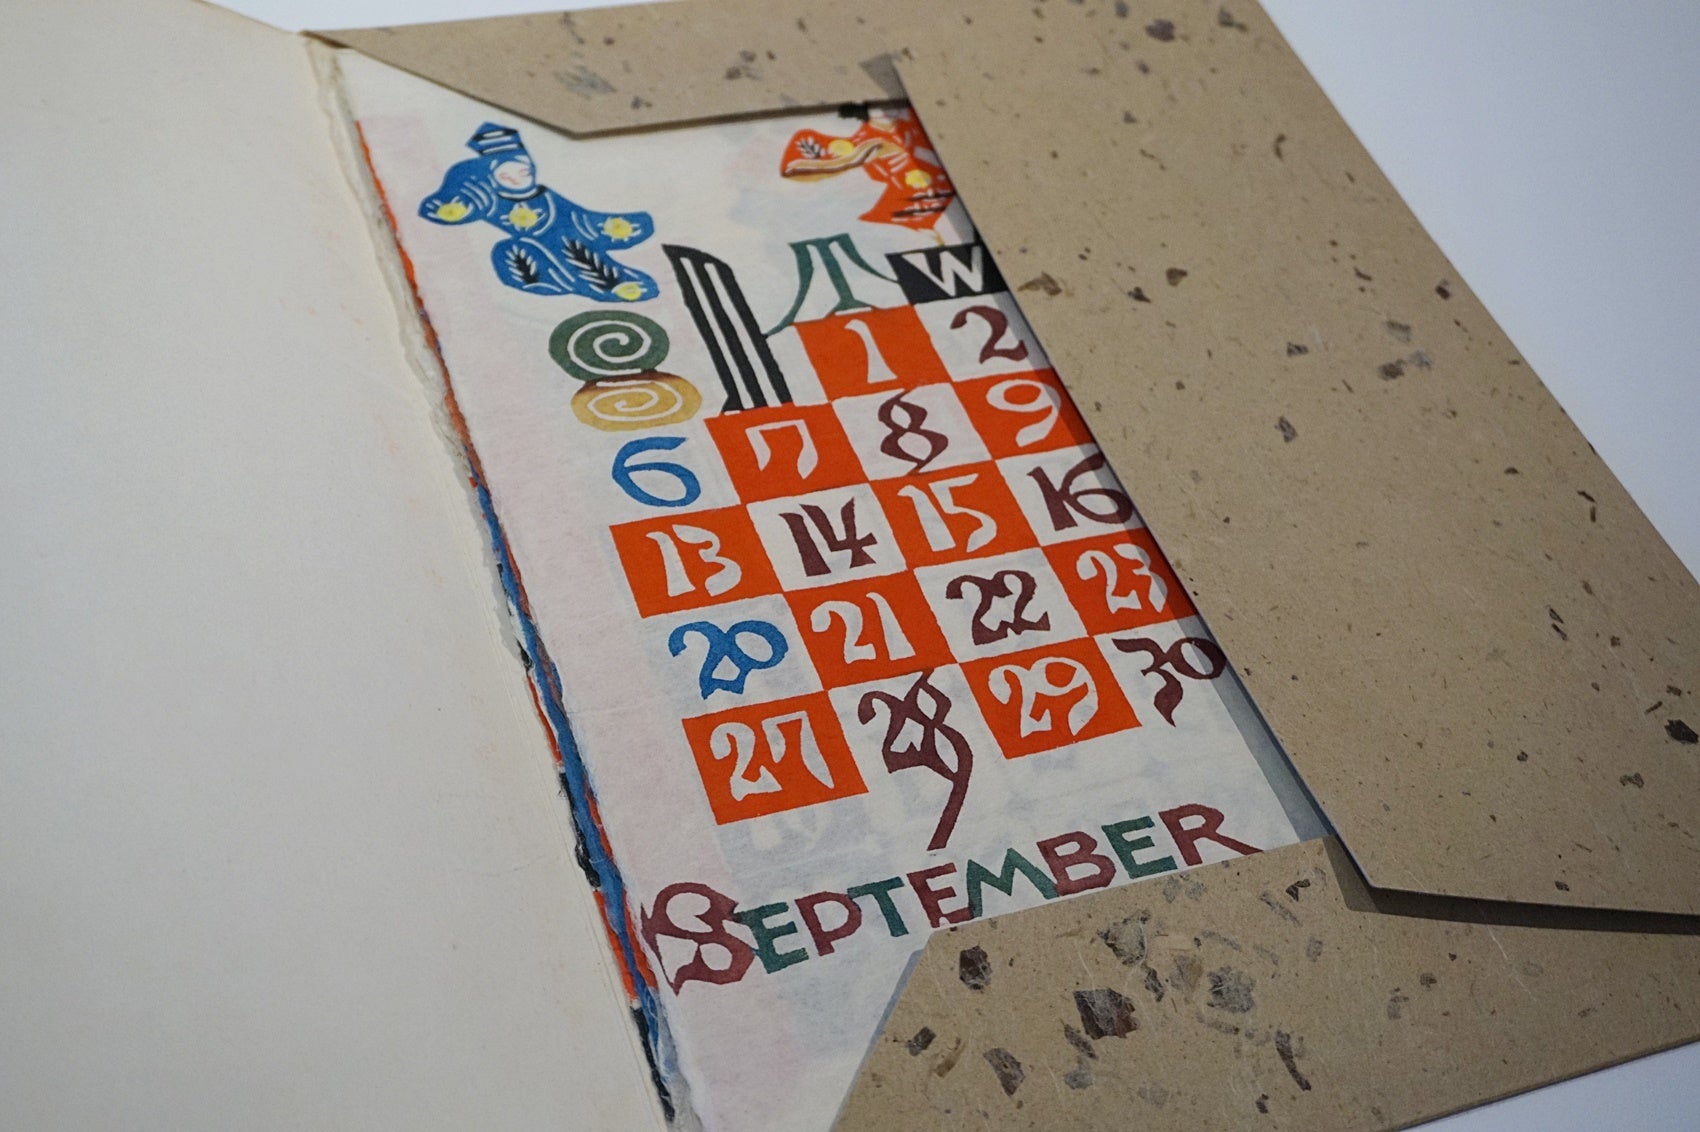 S M T W
1 2
6 7 8 9
13 14 15 16
20 21 22 23
27 28 29 30
SEPTEMBER